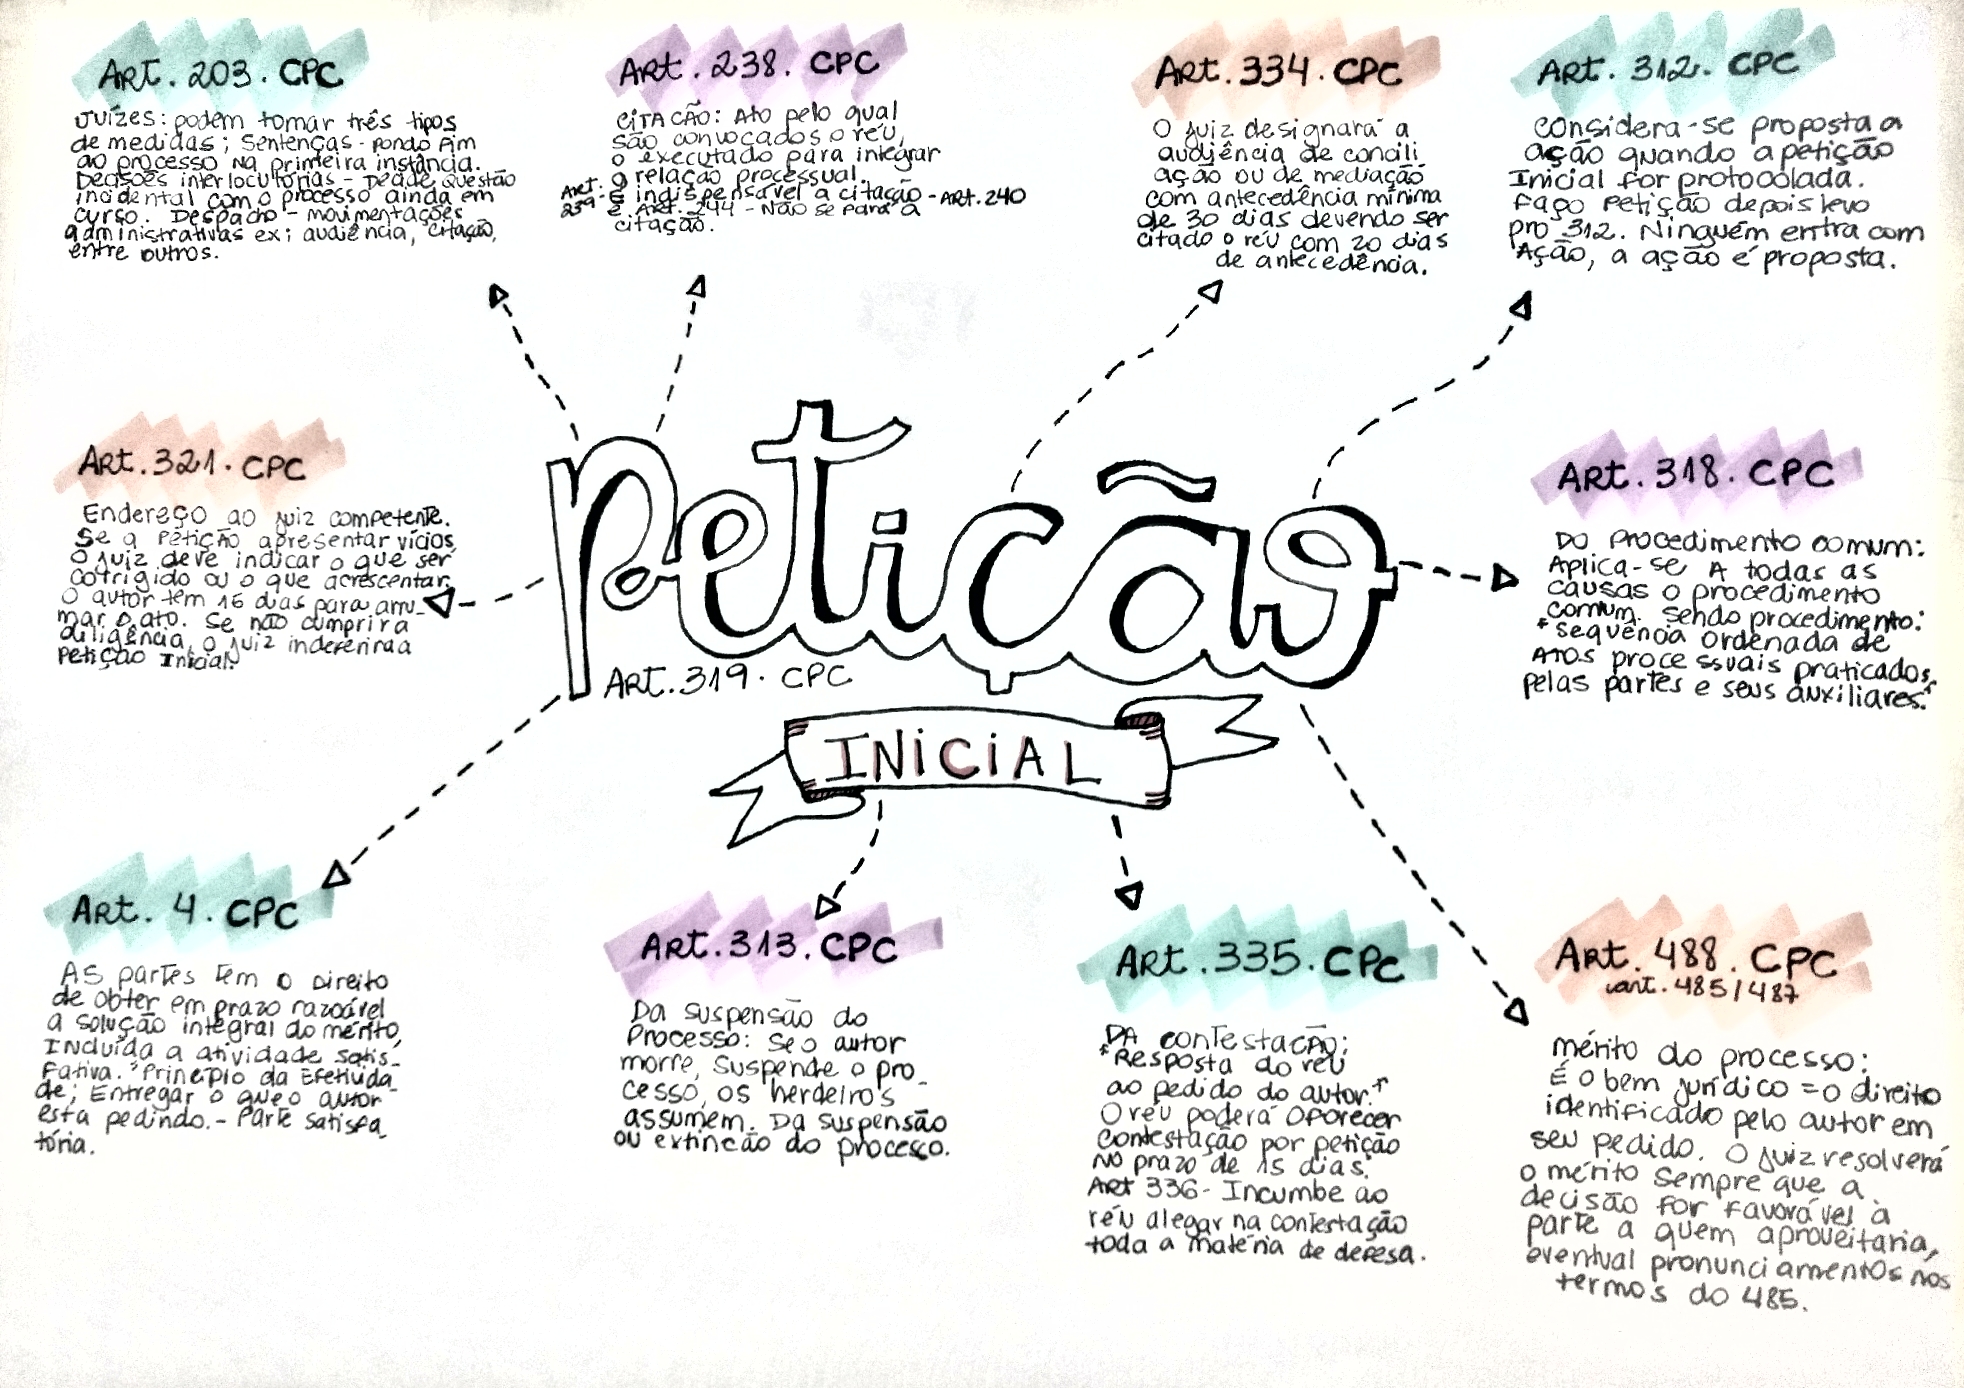 Art. 203. CPC
Juízes: podem tomar três tipos
de medidas; Sentenças - pondo fim
ao processo na primeira instância.
Decisões interlocutórias - Decide questão
incidental com o processo ainda em
curso. Despacho - movimentações
administrativas ex; audiência, citação,
entre outros.
Art. 238. CPC
CITACÃO: Ato pelo qual
são convocados o réu,
o executado para integrar
a relação processual.
Art. 239 - É indispensável a citação - Art. 240
e Art. 244 - Não se fará a
citação.
Art. 334. CPC
O juiz designará a
audiência de concili
ação ou de mediação
com antecedência mínima
de 30 dias devendo ser
citado o réu com 20 dias
de antecedência.
Art. 312. CPC
Considera-se proposta a
ação quando a petição
Inicial for protocolada.
Faço Petição depois levo
pro 312. Ninguém entra com
Ação, a ação é proposta.
Art. 321. CPC
Endereço ao juiz competente.
Se a Petição apresentar vícios,
O juiz deve indicar o que ser
cotrigido ou o que acrescentar,
O autor tem 15 dias para arru-
mar o ato. Se não cumprir a
diligência, o juiz indeferirá a
Petição Inicial.
Petição
Art. 319. CPC
INICIAL
Art. 318. CPC
Do Procedimento comum:
Aplica-se A todas as
causas o procedimento
comum. Sendo procedimento:
*Sequência ordenada de
Atos processuais praticados,
pelas partes e seus auxiliares.*
Art. 4. CPC
As partes tem o Direito
de obter em prazo razoável
a solução integral do mérito,
Incluída a atividade satis-
Fativa. "Princípio da Efetivida-
de; Entregar o que o autor
está pedindo. - Parte Satisfa-
tória.
Art. 313. CPC
Da suspensão do
Processo: Se o autor
morre, suspende o pro-
cesso, os herdeiros
assumem. Da suspensão
ou extincão do processo.
Art. 335. CPC
DA contestação:
*Resposta do réu
ao pedido do autor.*
O réu poderá Oferecer
contestação por petição
no prazo de 15 dias.
Art 336 - Incumbe ao
réu alegar na contestação
toda a matéria de defesa.
Art. 488. CPC
art. 485/487
mérito do processo:
É o bem jurídico = o direito
identificado pelo autor em
seu pedido. O juiz resolverá
o mérito Sempre que a
decisão for favorável à
parte a quem aproveitaria,
eventual pronunciamentos nos
termos do 485.